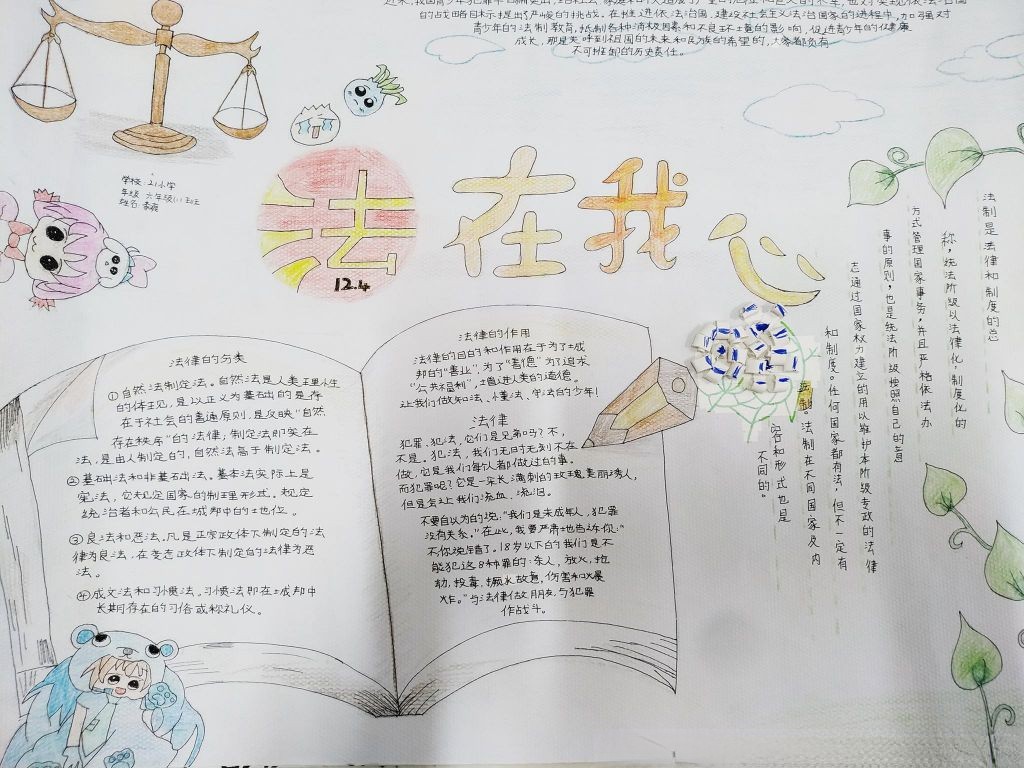 的战略目标提出了严峻的挑战。在推进依法治国、建设社会主义法治国家的进程中,加强对
青少年的法制教育,抵制各种消极因素和不良环境的影响,促进青少年的健康
成长,那是关呼到祖国的未来和民族的希望的,大家都负有
不可推卸的历史责任。
学校:21小学
年级 六年级(1)班
姓名:
法在我心
12.4
法律的分类
①自然法制定法。自然法是人类理性
的体现,是以正义为基础的是存
在于社会的普通原则,是反映“自然
存在秩序”的法律,制定法即实在
法,是由人制定的,自然法高于制定法。
②基础法和非基础法。基本法实际上是
宪法,它规定国家的制理形式。规定
统治者和公民在城邦中的地位。
③良法和恶法。凡是正宗政体下制定的法
律为良法,在变态政体下制定的法律为恶
法。
④成文法和习惯法。习惯法即在城邦中
长期存在的习俗或称礼仪。
法律的作用
法律的目的和作用在于为了城
邦的“善业”,为了“善德”为了追求
“公共福利”,增进人类的道德。
让我们做知法、懂法、守法的少年!
法律
犯罪、犯法,它们是兄弟吗?不,
不是。犯法,我们无时无刻不在
做,它是我们每个人都做过的事。
而犯罪呢?它是一朵长满刺的玫瑰美丽诱人,
但是会让我们流血、流泪。
不要自以为的说:“我们是未成年人,犯罪
没有关系。”在此,我要严肃地告诉你:“
不你说错了。18岁以下的我们是不
能犯这8种罪的:杀人,放火,抢
劫,投毒,
作战斗。
法制是法律和制度的总
称,统法阶级以法律化,制度化的
方式管理国家事务,并且严格依法办
事的原则,也是统法阶级按照自己的意
志通过国家权力建立的用以维护本阶级专政的法律
和制度。任何国家都有法,但不一定有
法制在不同国家及内
容和形式也是
不同的。